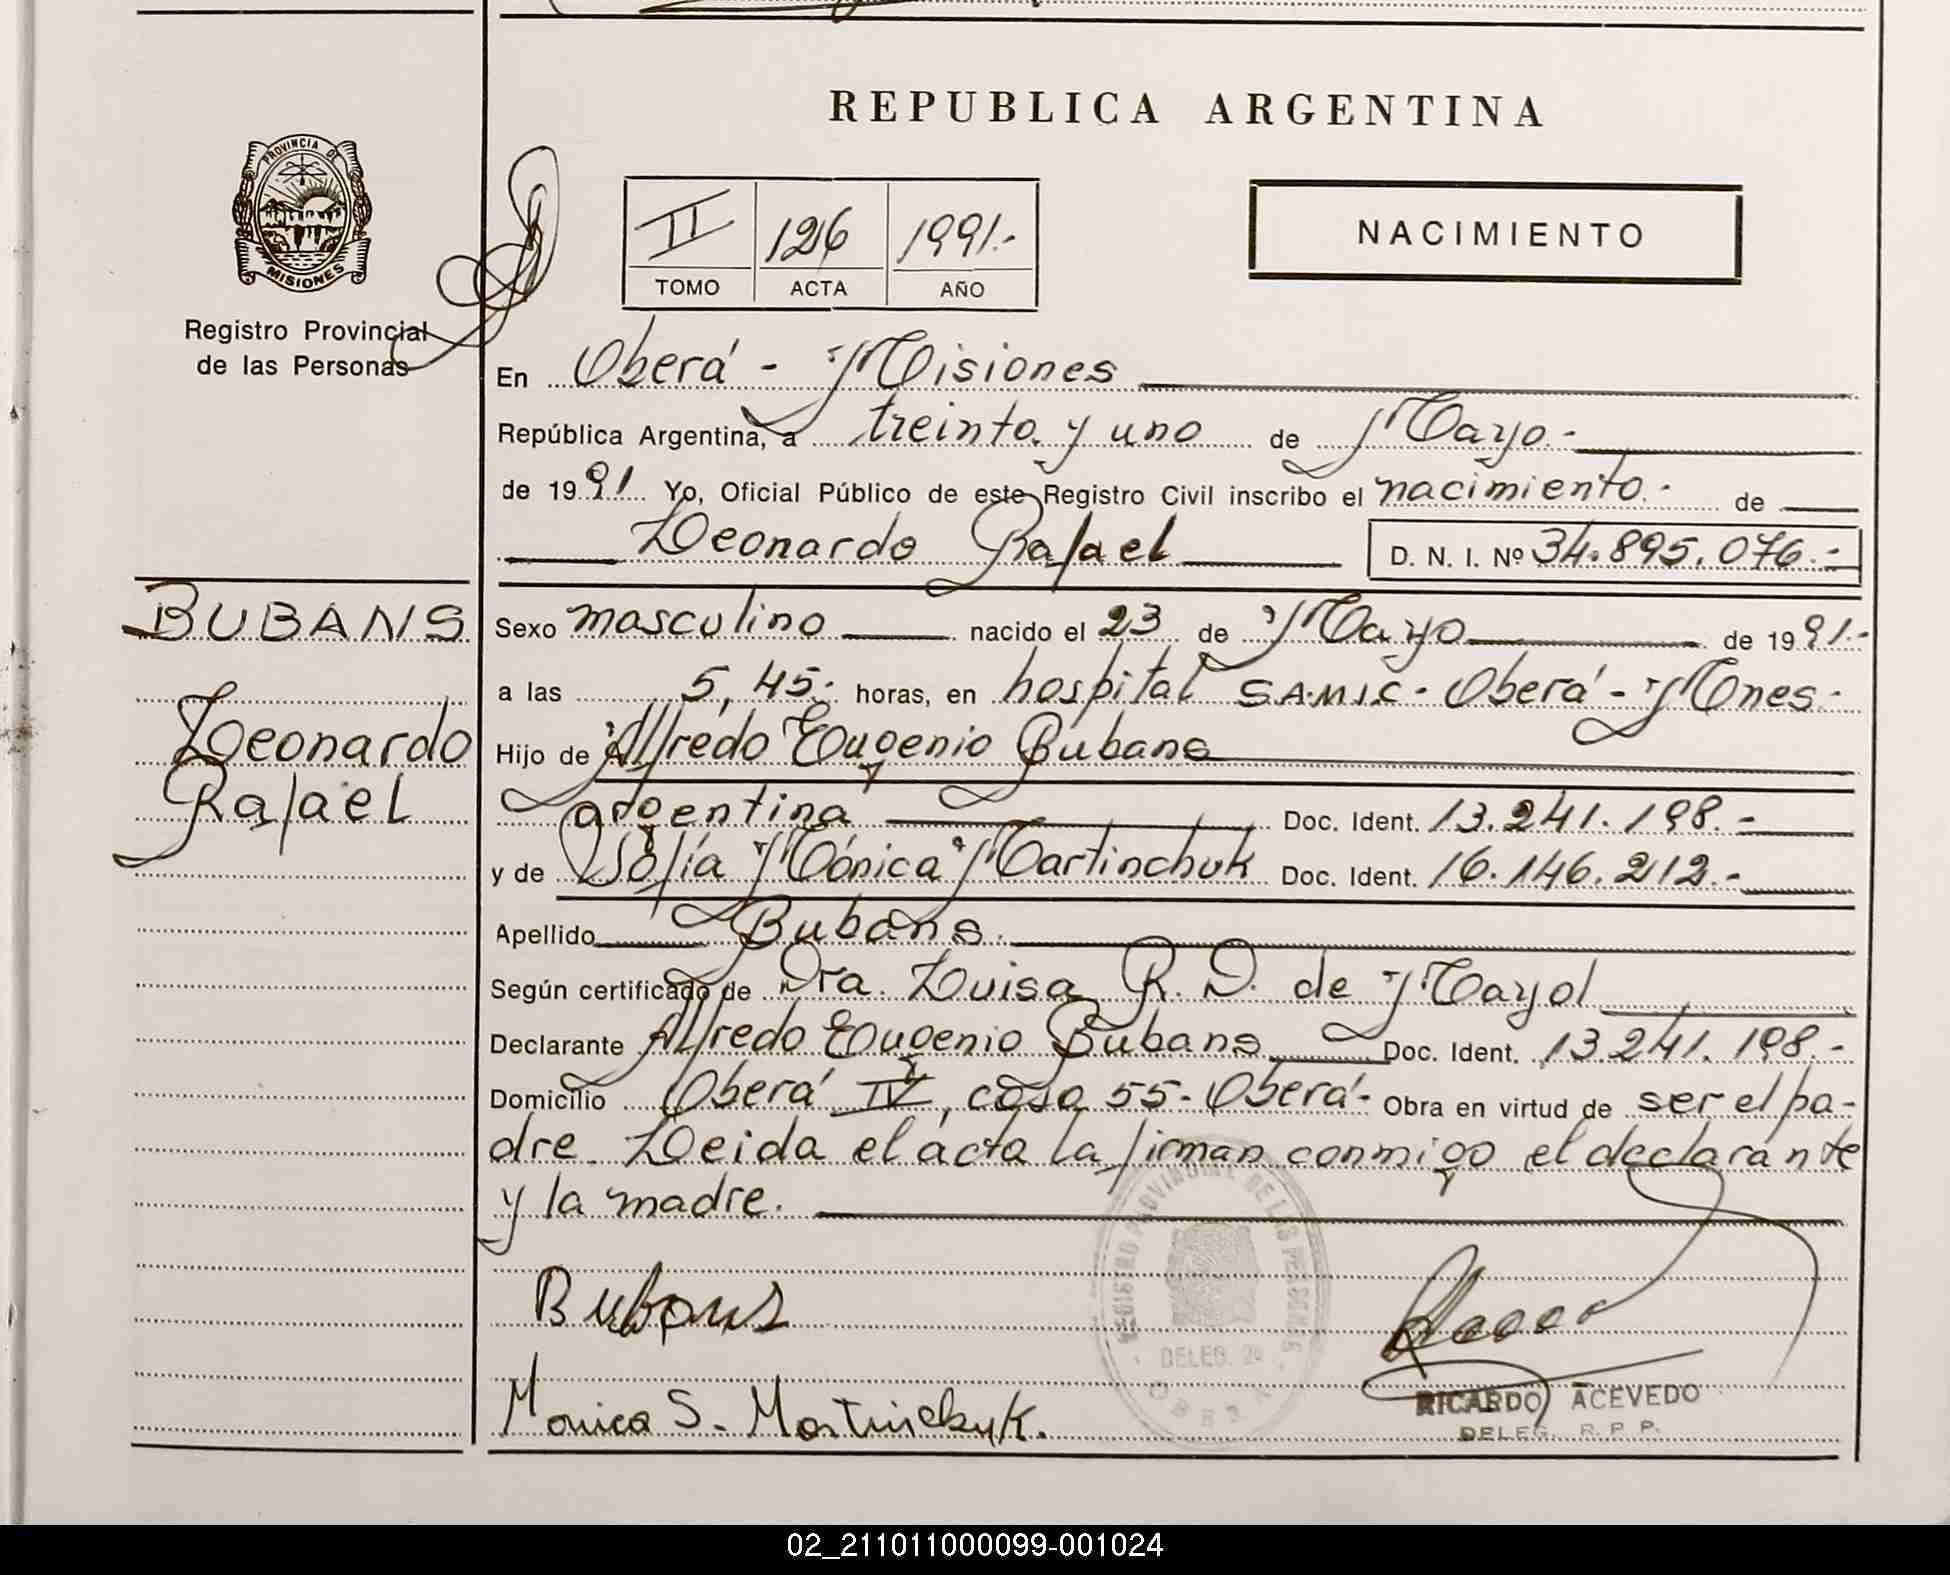 REPUBLICA ARGENTINA
PROVINCIA DE
MISIONES
Registro Provincial
de las Personas
II 126 1991.-
TOMO ACTA AÑO
NACIMIENTO
En Oberá - Misiones
República Argentina, a treinta y uno de Mayo.-
de 1991 Yo, Oficial Público de este Registro Civil inscribo el nacimiento.- de
Leonardo Rafael D. N. I. Nº 34.895.076.-
BUBANS
Leonardo
Rafael
Sexo masculino nacido el 23 de Mayo de 1991.-
a las 5,45.- horas, en hospital SAMIC - Oberá - Mnes.-
Hijo de Alfredo Eugenio Bubans
argentina Doc. Ident. 13.241.198.-
y de Sofía Mónica Martinchuk Doc. Ident. 16.146.212.-
Apellido Bubans.
Según certificado de Dra. Luisa R. D. de Mayol
Declarante Alfredo Eugenio Bubans Doc. Ident. 13241.198.-
Domicilio Oberá IV, casa 55- Oberá.- Obra en virtud de ser el pa-
dre. Leida el acta la firman conmigo el declarante
y la madre.
REGISTRO PROVINCIAL DE LAS PERSONAS
DELEG. 24
OBERA
Bubans
Monica S. Martinchuk.
RICARDO ACEVEDO
DELEG. R. P. P.
02_211011000099-001024